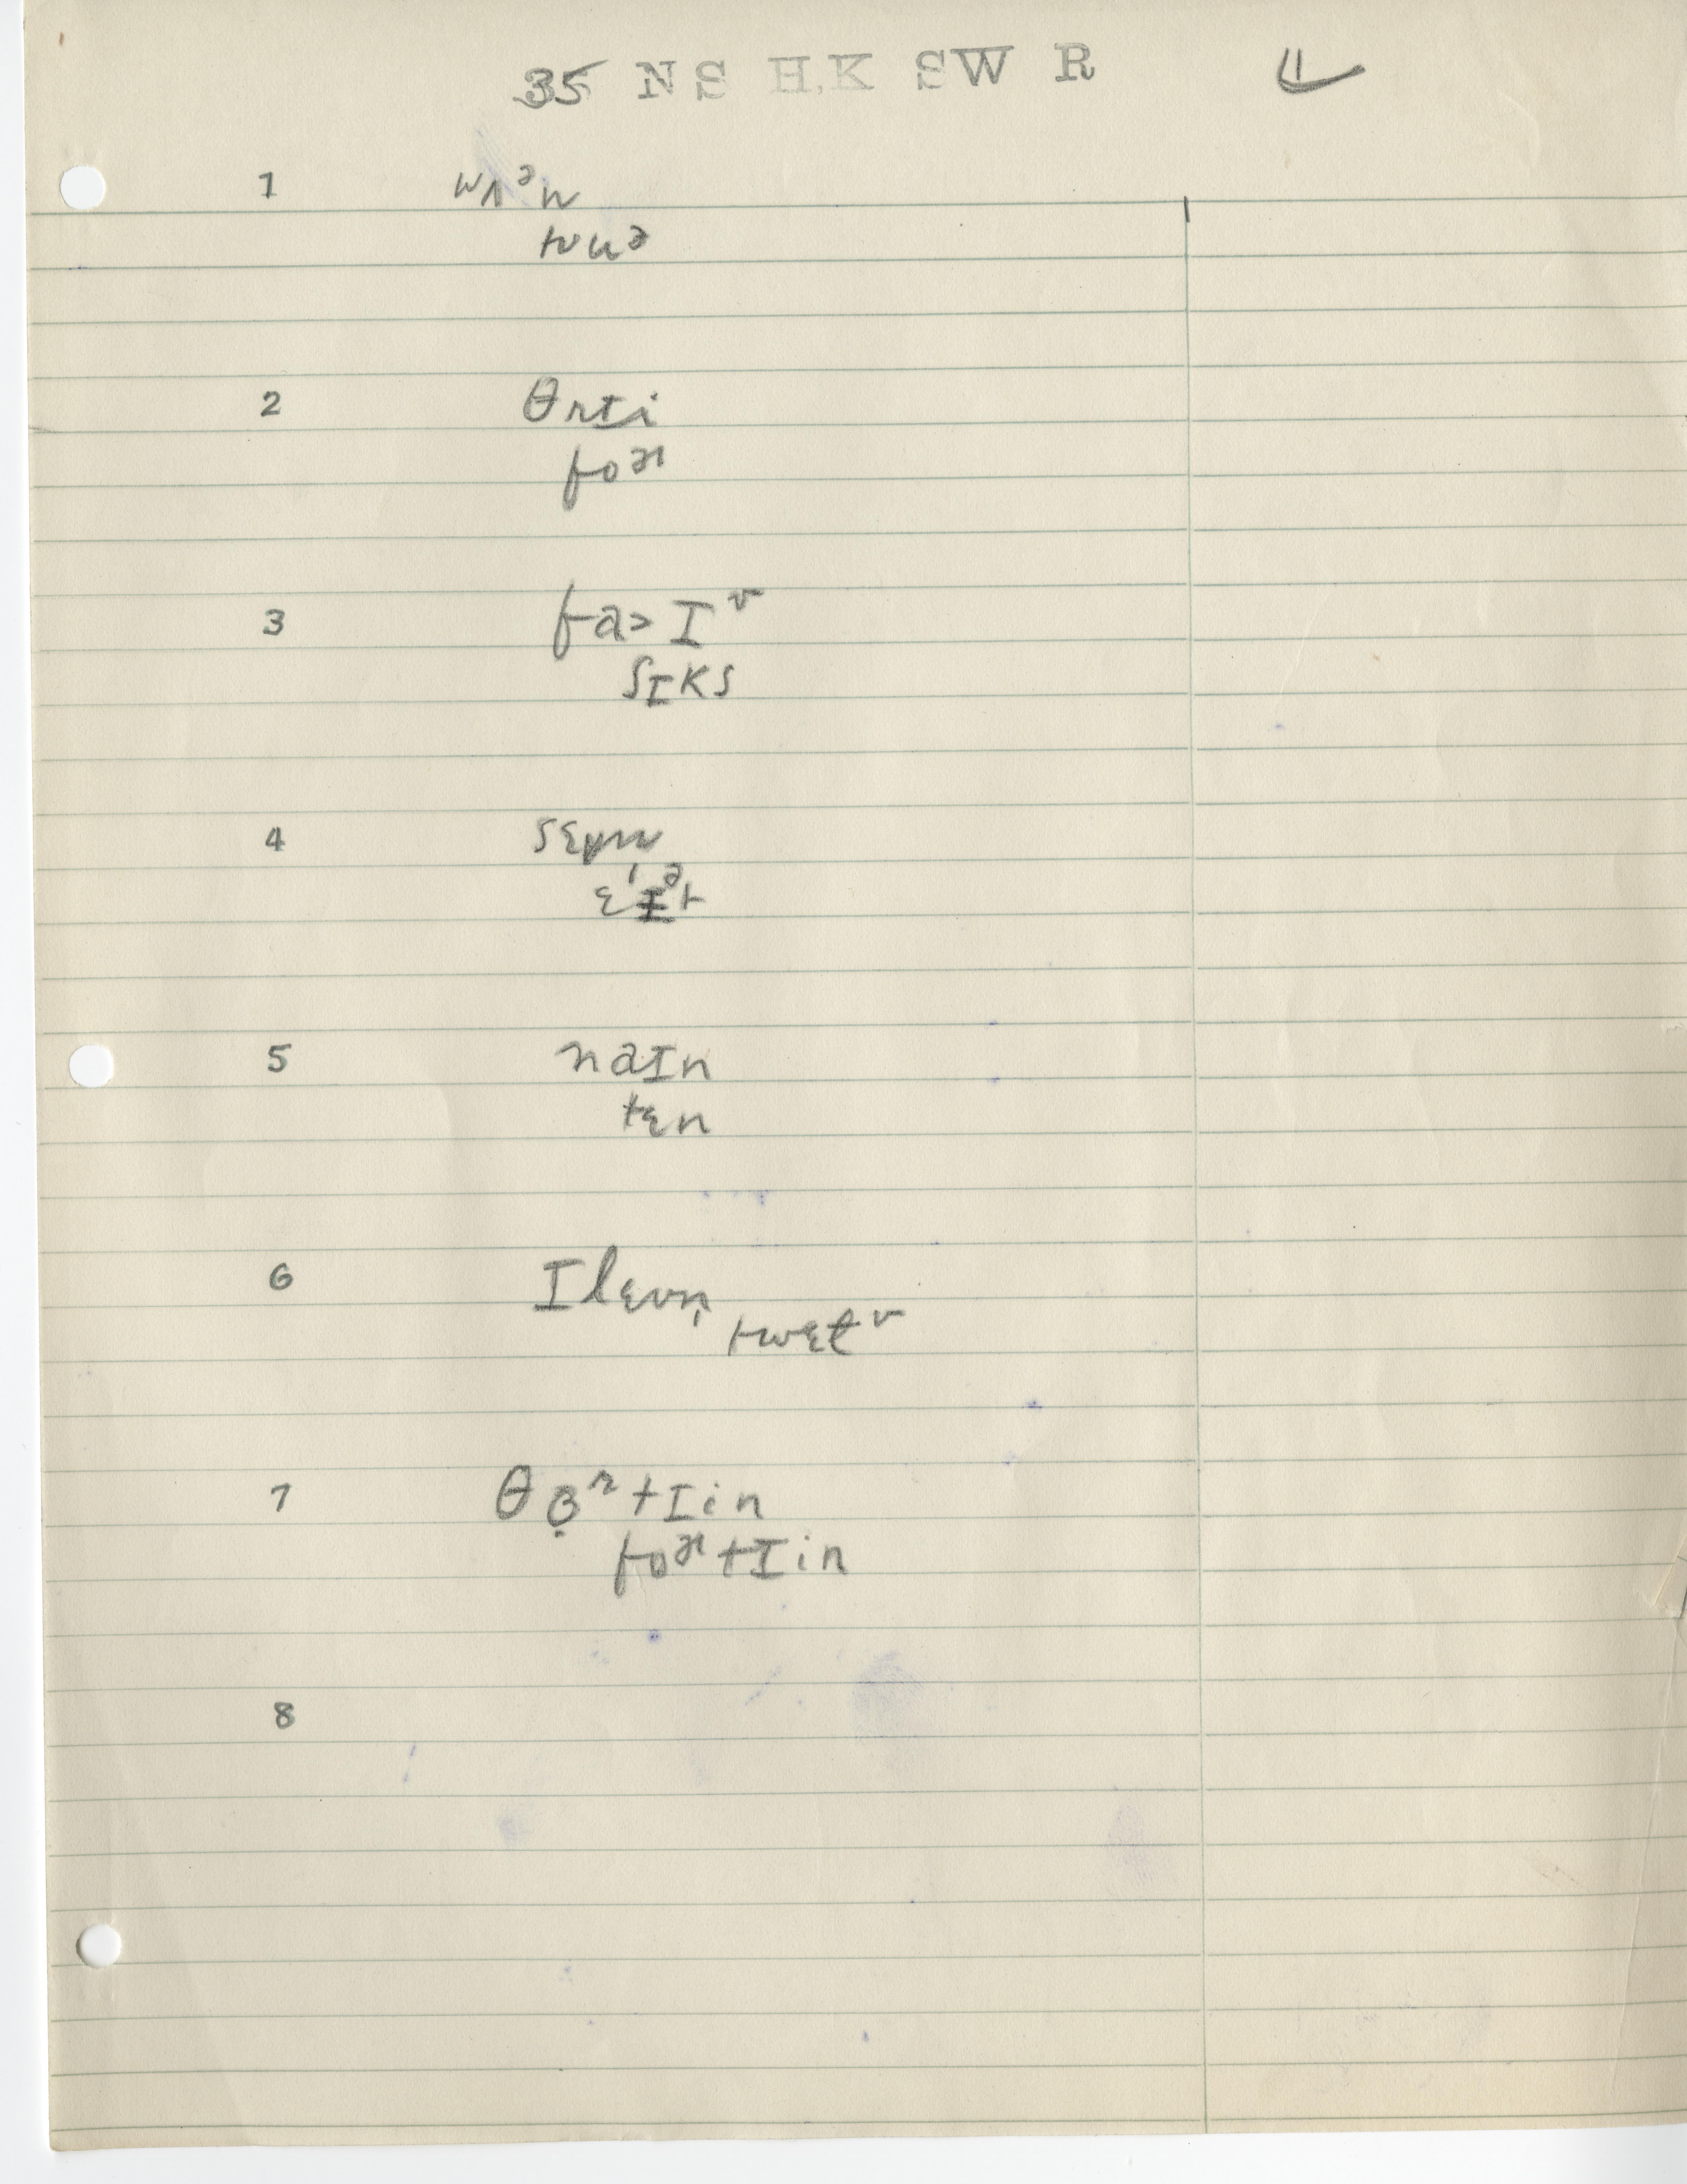 35 N S H. K S W R
1 wʌᵊn
tuuᵊ
2 θɹɪi
foᵊɹ
3 fa>ɪv
sɪks
4 sɛvm
ɛɪᵊt
5 naɪn
tɛn
6 ɪlɛvn̩
twɛlv
7 tɪin
foᵊɹtɪin
8